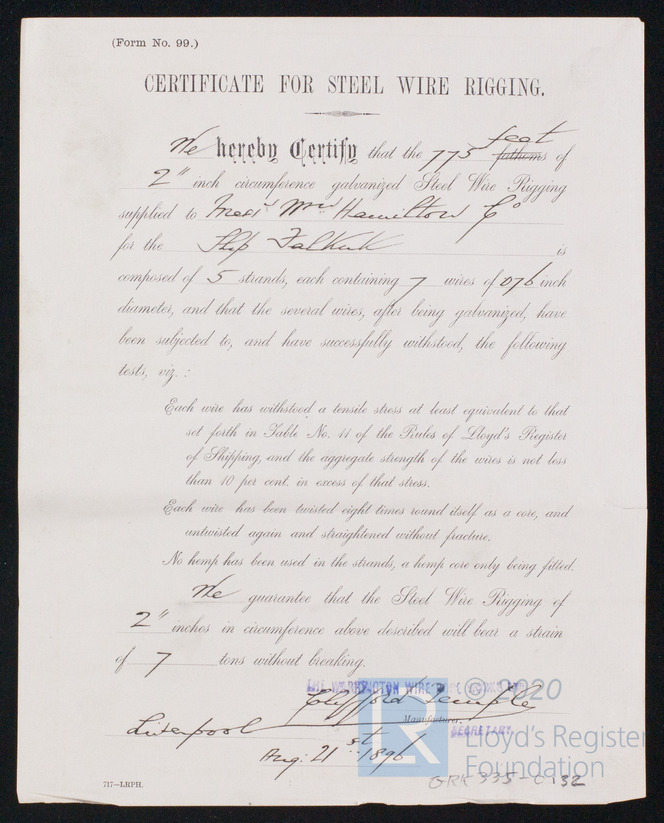 (Form No. 99.)
CERTIFICATE FOR STEEL WIRE RIGGING.
feet
We hereby Certify that the 775 fathoms of
2" inch circumference galvanized Steel Wire Rigging
supplied to Messrs Wm Hamilton Co
for the Ship Falkirk is
composed of 5 strands, each containing 7 wires of 076 inch
diameter, and that the several wires, after being galvanized, have
been subjected to, and have successfully withstood, the following
tests, viz.:
Each wire has withstood a tensile stress at least equivalent to that
set forth in Table No. 11 of the Rules of Lloyd's Register
of Shipping, and the aggregate strength of the wires is not less
than 10 per cent. in excess of that stress.
Each wire has been twisted eight times round itself as a core, and
untwisted again and straightened without fracture.
No hemp has been used in the strands, a hemp core only being fitted.
We guarantee that the Steel Wire Rigging of
2" inches in circumference above described will bear a strain
of 7 tons without breaking.
THE WARRINGTON WIRE
Clifford Temple
Manufacturer.
SECRETARY.
Liverpool
Aug: 21st 1896
717—LRPH.
LR
© 2020
Lloyd's Register
Foundation
GRK 335-C 132